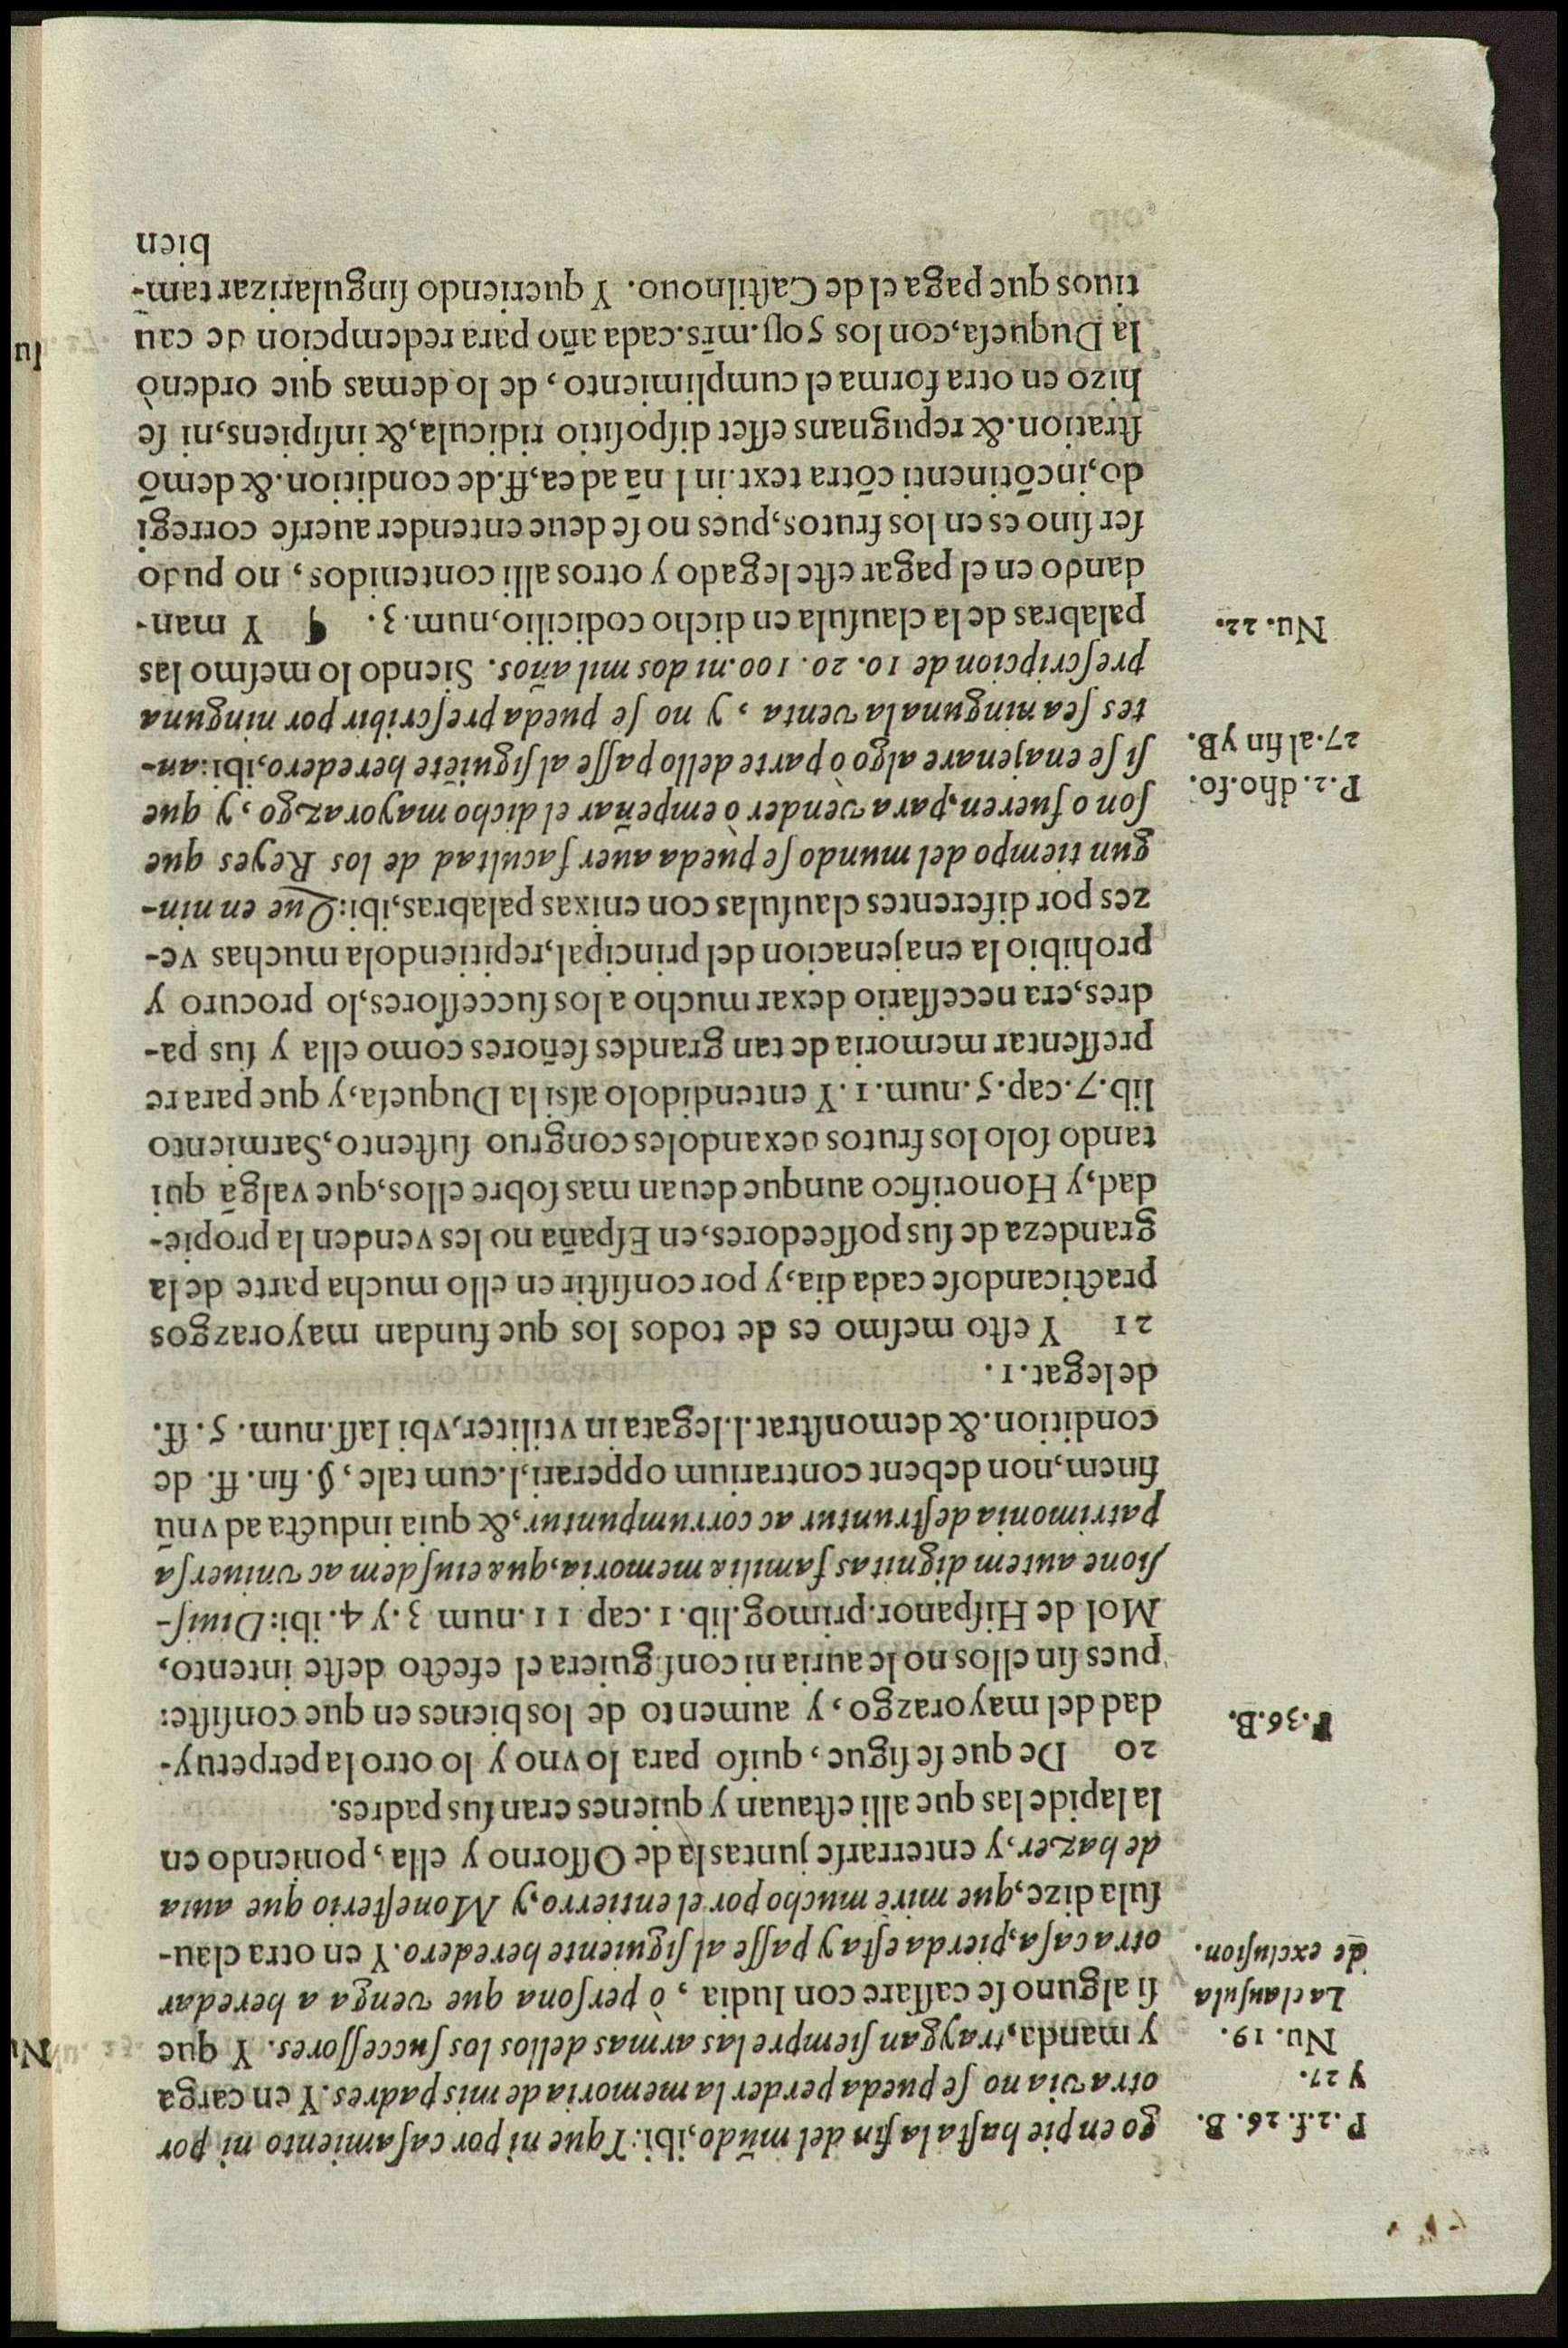 P.2.f.26.B.
y 27.
Nu. 19.
La clausula
de exclusion.
P.36.B.
P.2.dho.fo.
27.al fin yB.
Nu. 22.
go en pie hasta la fin del mũdo,ibi:Y que ni por casamiento ni por
otra via no se pueda perder la memoria de mis padres.Y en carga
y manda,traygan siempre las armas dellos los successores. Y que
si alguno se cassare con Iudia , ò persona que venga a heredar
otra casa,pierda esta y passe al siguiente heredero.Y en otra clau-
sula dize,que mire mucho por el entierro,y Monesterio que auia
de hazer,y enterrarse juntas la de Ossorno y ella , poniendo en
la lapide las que alli estauan y quienes eran sus padres.
20 De que se sigue , quiso para lo vno y lo otro la perpetuy-
dad del mayorazgo , y aumento de los bienes en que consiste:
pues sin ellos no le auria ni consiguiera el efecto deste intento,
Mol de Hispanor.primog.lib.1.cap 11.num 3.y 4.ibi:Diuis-
sione autem dignitas familiæ memoria,quæ eiusdem ac vniuersa
patrimonia destruntur ac corrumpuntur,& quia inducta ad vnũ
finem,non debent contrarium opperari,l.cum tale , §. fin. ff. de
condition.& demonstrat.l.legata in vtiliter,vbi Iass.num. 5. ff.
de legat.1.
21 Y esto mesmo es de todos los que fundan mayorazgos
practicandose cada dia,y por consistir en ello mucha parte de la
grandeza de sus posseedores,en España no les venden la propie-
dad,y Honorifico aunque deuan mas sobre ellos,que valgã qui
tando solo los frutos dexandoles congruo sustento,Sarmiento
lib.7.cap.5.num.1.Y entendidolo assi la Duquesa,y que para re
pressentar memoria de tan grandes señores como ella y sus pa-
dres,era necessario dexar mucho a los successores,lo procuro y
prohibio la enajenacion del principal,repitiendola muchas ve-
zes por diferentes clausulas con enixas palabras,ibi:Que en nin-
gun tiempo del mundo se pueda auer facultad de los Reyes que
son o fueren,para vender ò empeñar el dicho mayorazgo , y que
si se enajenare algo ò parte dello passe al siguiẽte heredero,ibi:an-
tes sea ninguna la venta , y no se pueda prescribir por ninguna
prescripcion de 10. 20. 100.ni dos mil años. Siendo lo mesmo las
palabras de la clausula en dicho codicilio,num.3. ¶ Y man-
dando en el pagar este legado y otros alli contenidos , no pudo
ser sino es en los frutos,pues no se deue entender auerse corregi
do,incõtinenti cõtra text.in l nã ad ea,ff.de condition.& demõ
stration.& repugnans esset dispositio ridicula,& insipiens,ni se
hizo en otra forma el cumplimiento , de lo demas que ordenò
la Duquesa,con los 50ɥ.mr̃s.cada año para redempcion de cau
tiuos que paga el de Castilnouo. Y queriendo singularizar tam-
bien